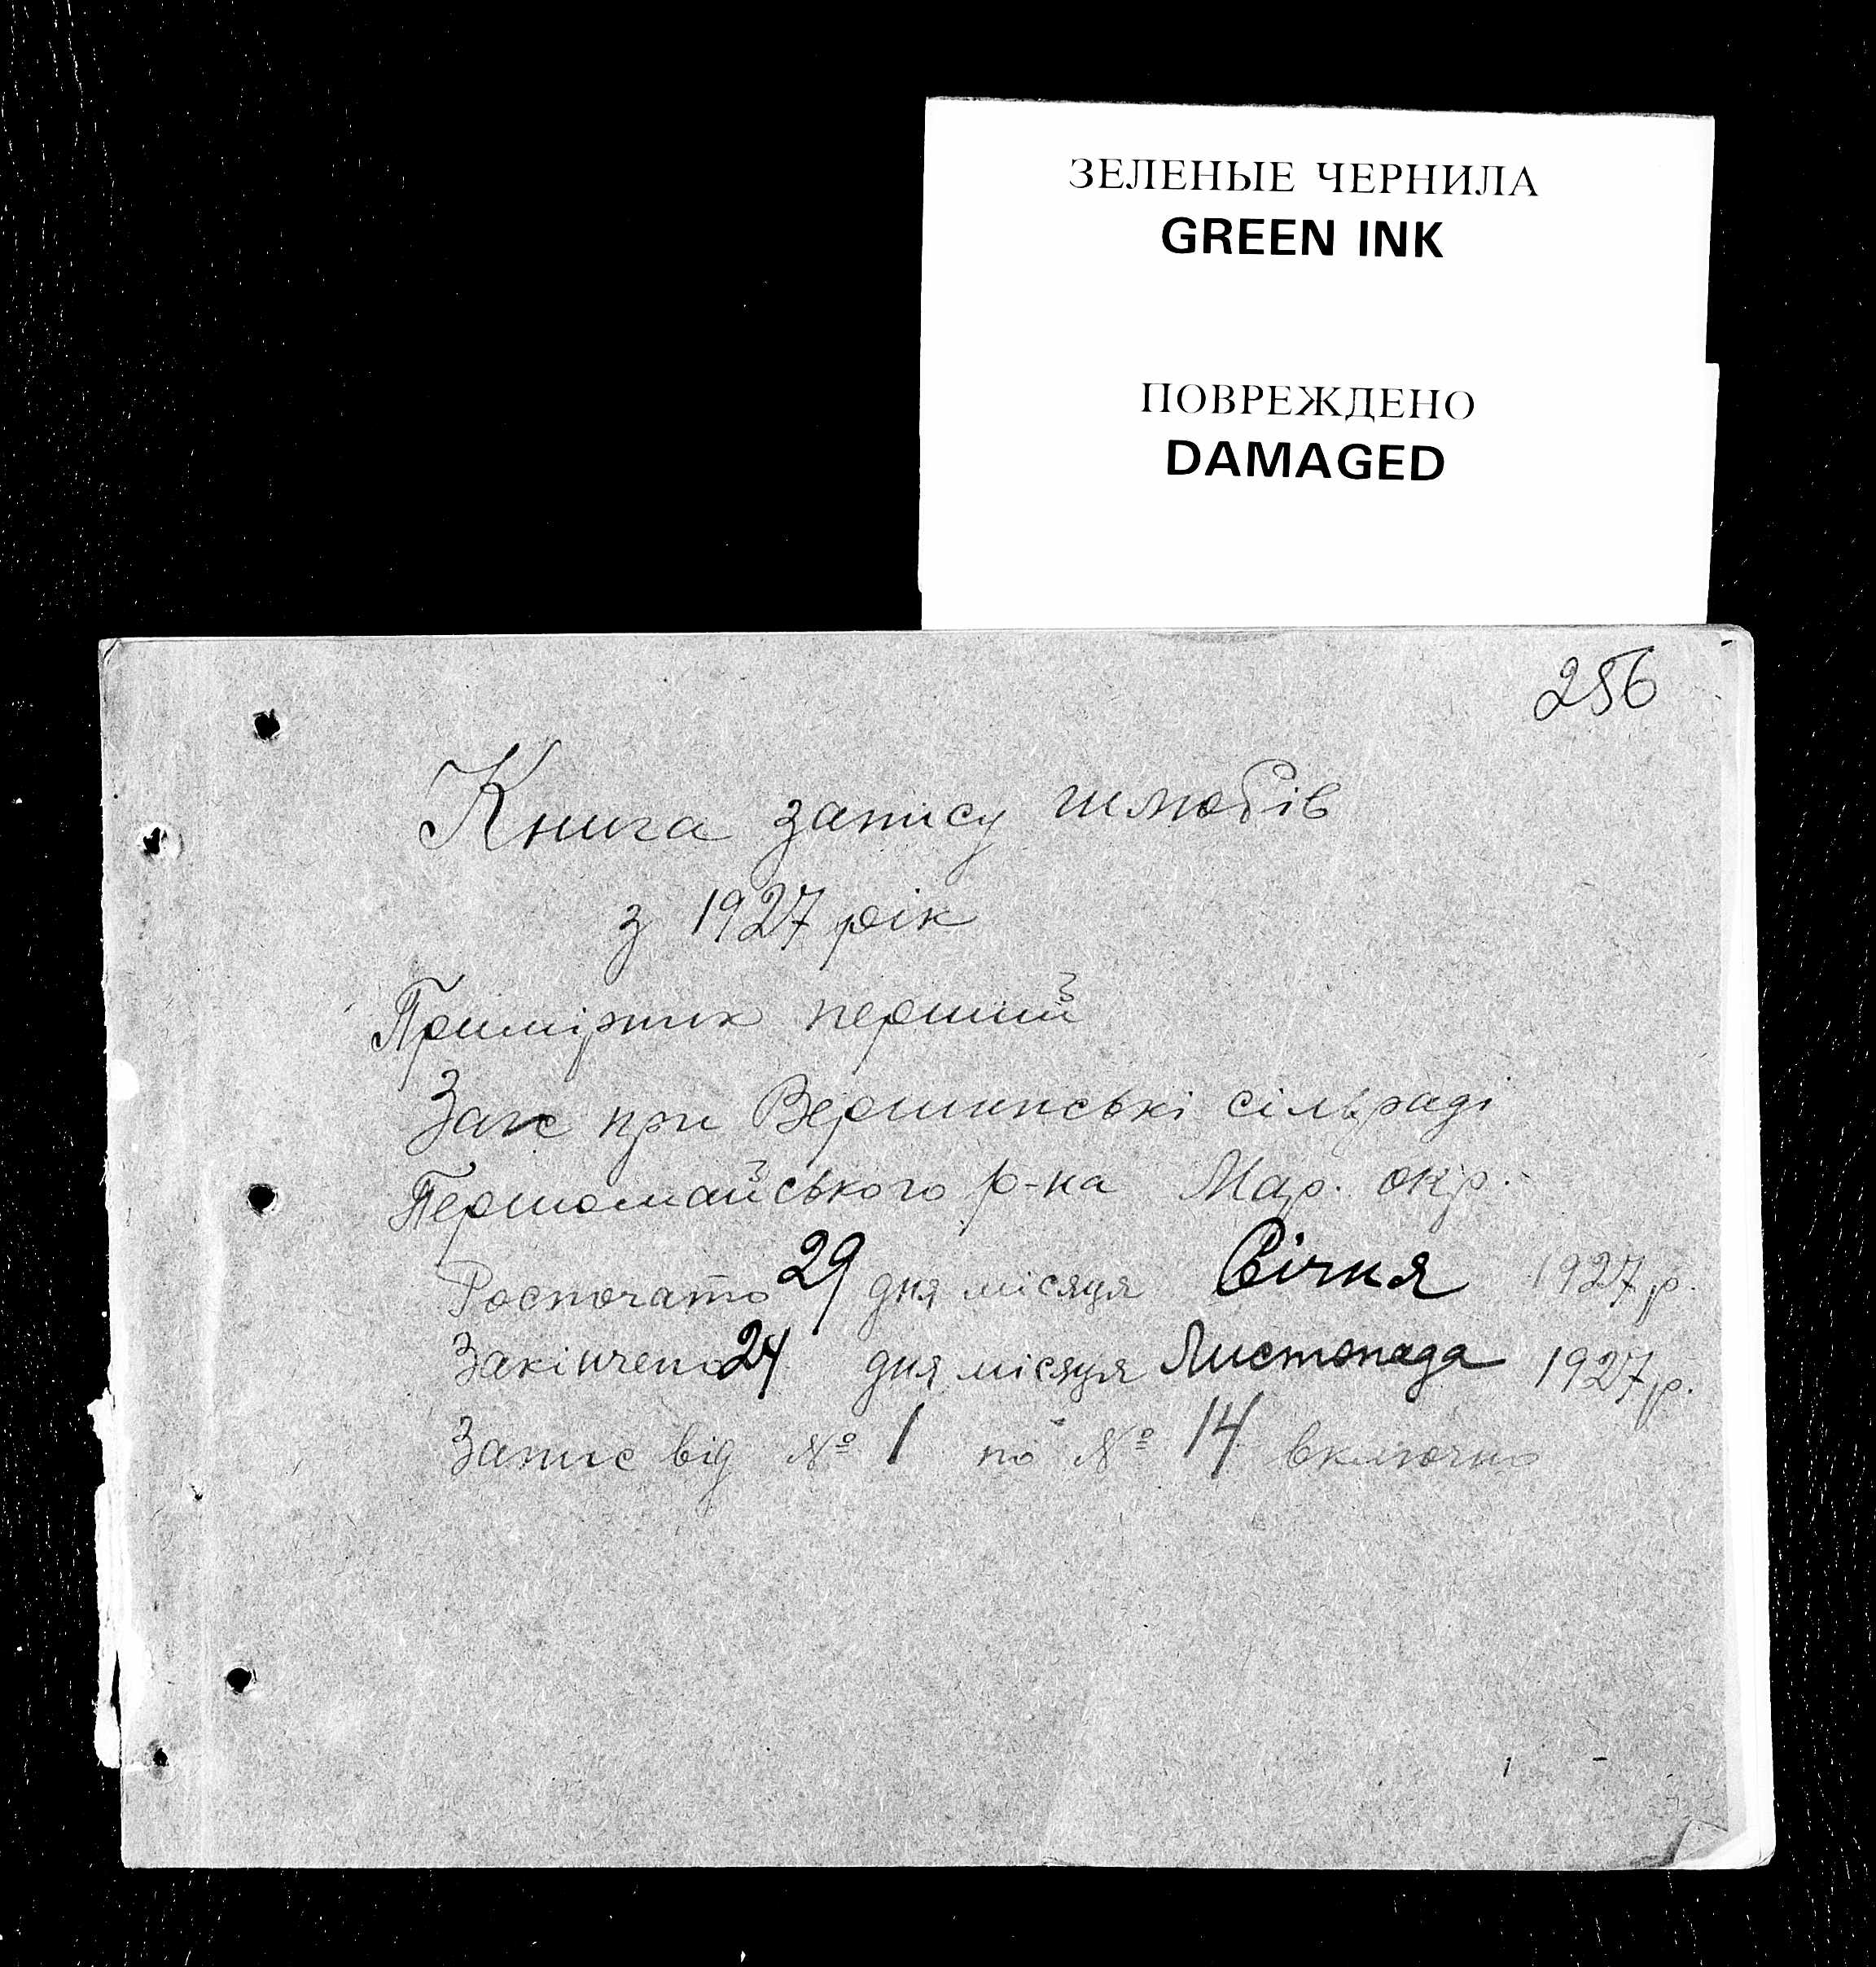 ЗЕЛЕНЫЕ ЧЕРНИЛА
GREEN INK
ПОВРЕЖДЕНО
DAMAGED
256
Книга запису шлюбів
з 1927 рік
Примірник перший
Загс при Вершинські сільраді
Першомайського р-на Мар. окр.
Роспочато 29 дня місяця Січня 1927 р.
Закінчено 24 дня місяця Листопада 1927 р.
Запис від № 1 по № 14 включно